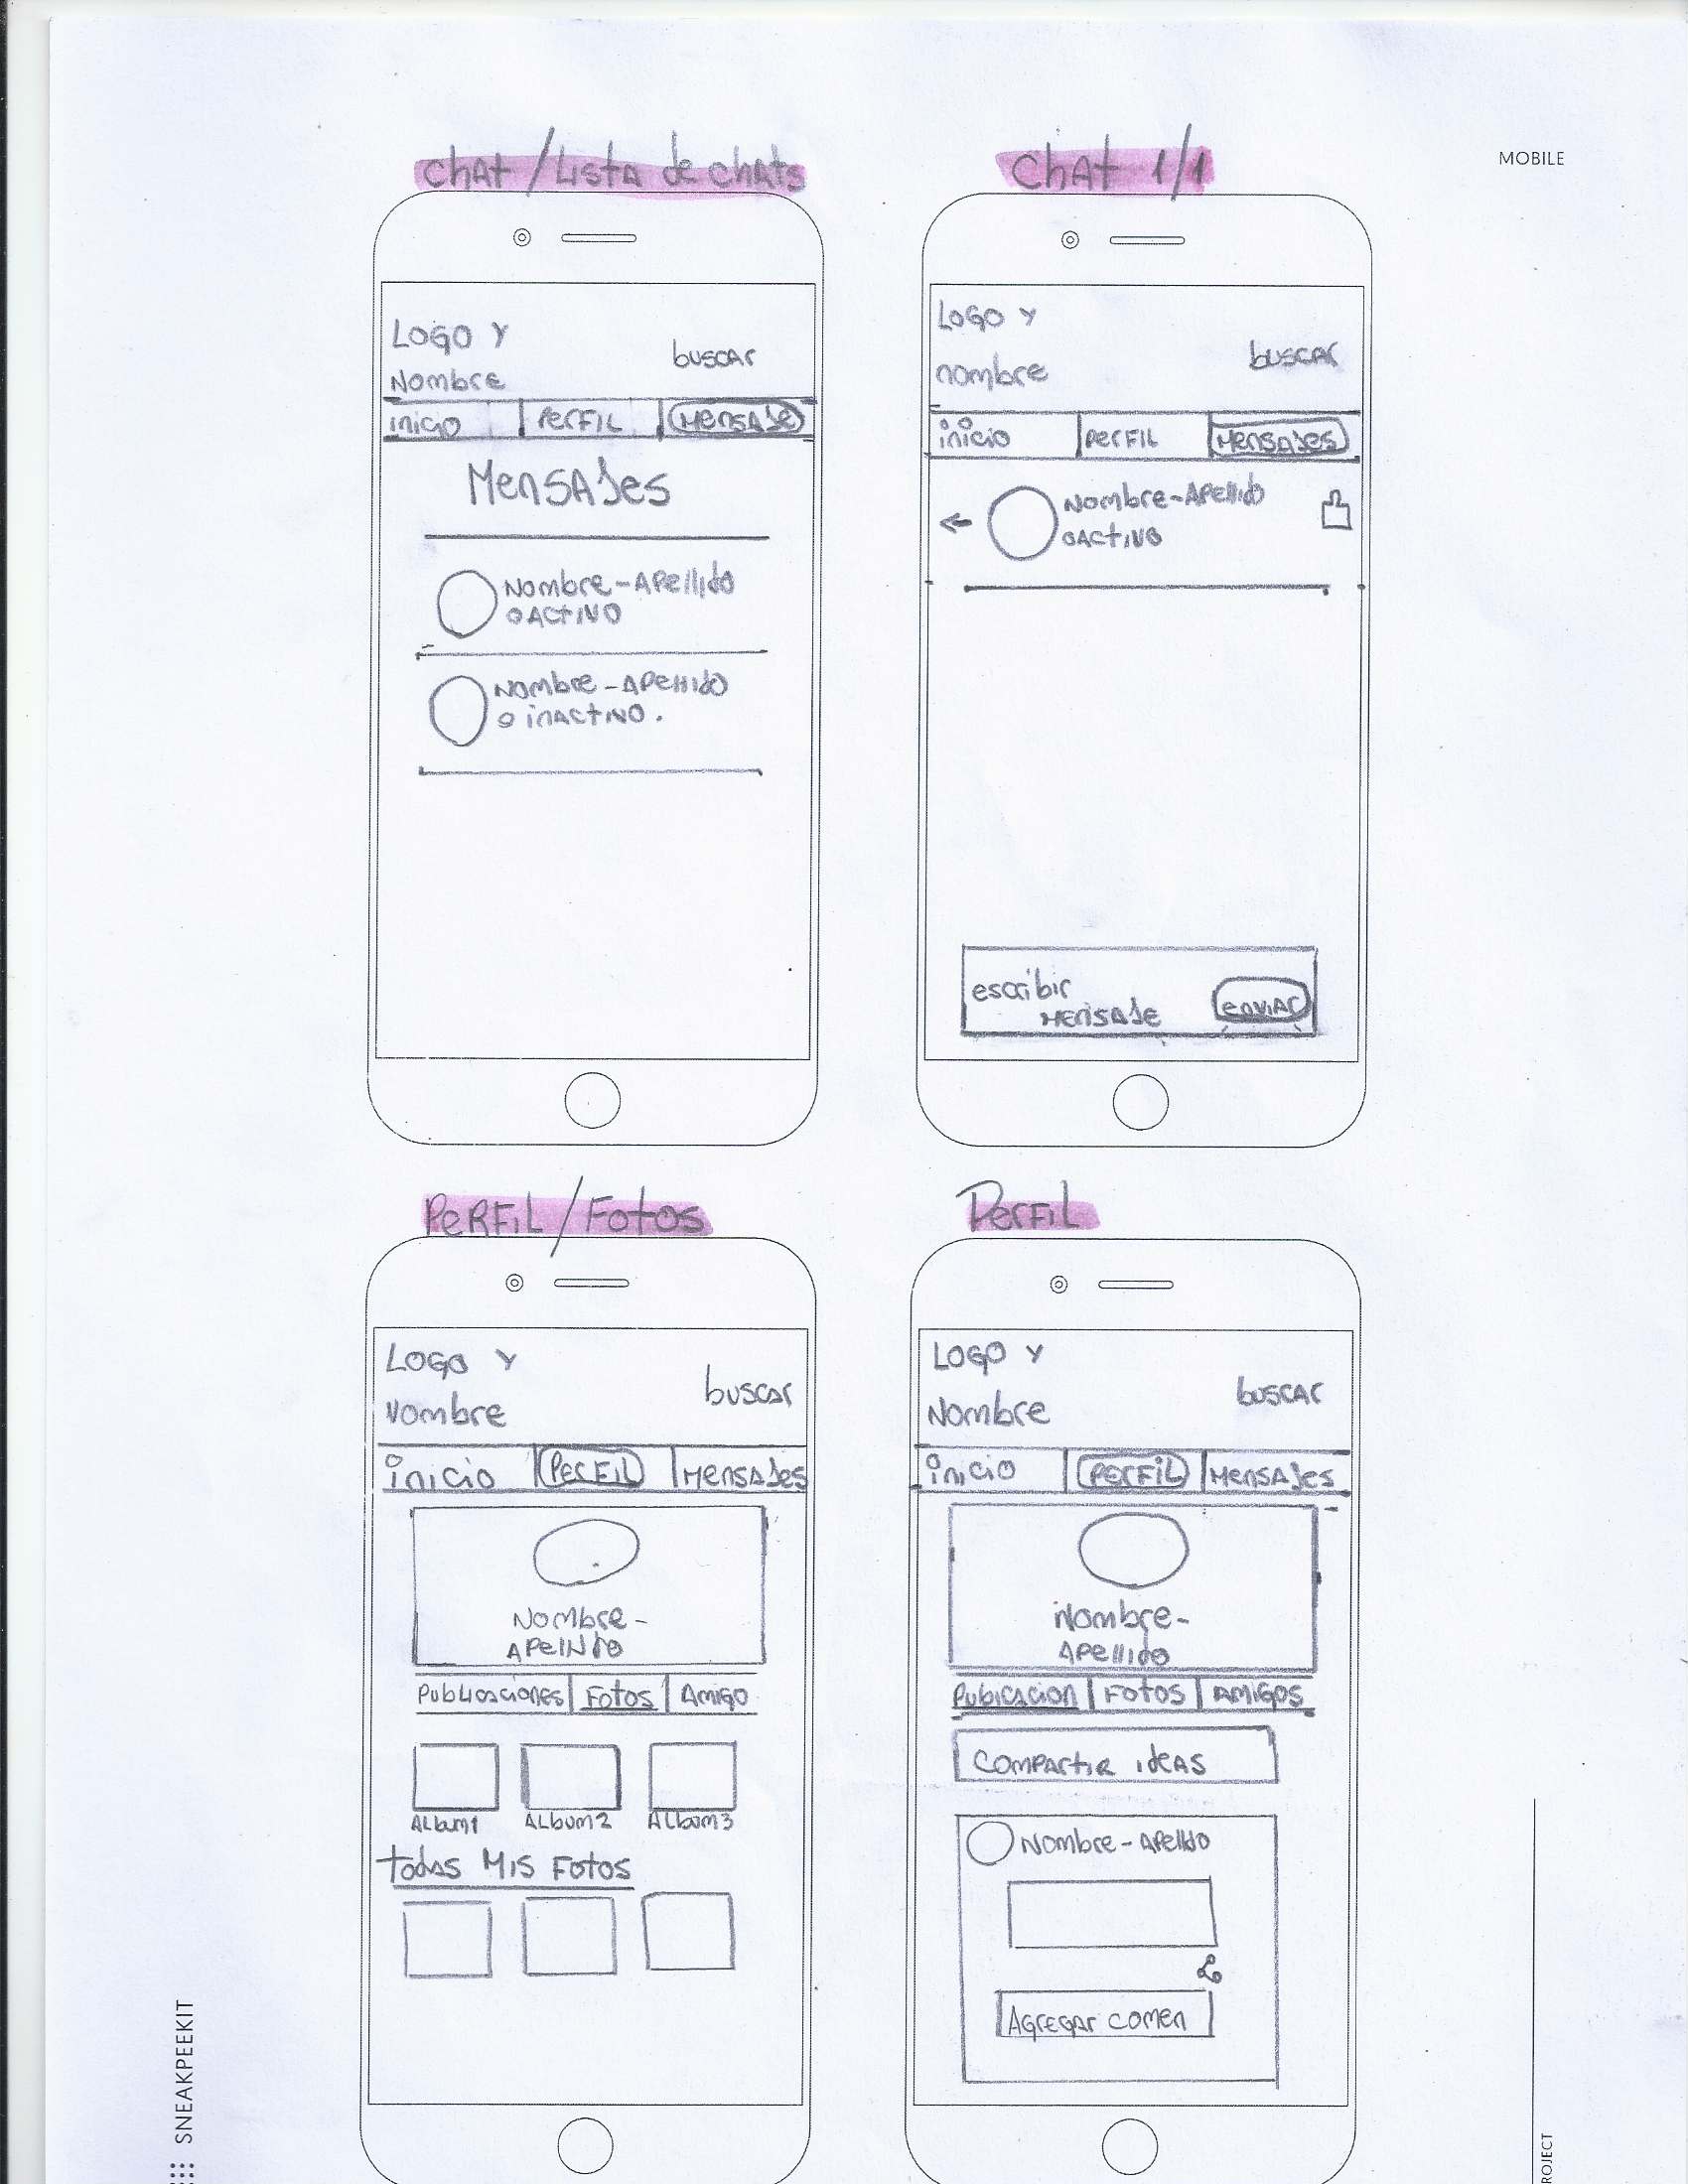 MOBILE
Chat / Lista de chats
Logo y
Nombre
buscar
inicio
Perfil
Mensaje
Mensajes
Nombre - Apellido
o Activo
Nombre - Apellido
o inactivo.
Chat 1/1
Logo y
nombre
buscar
inicio
Perfil
Mensajes
Nombre - Apellido
o Activo
escribir
Mensaje
enviar
Perfil / Fotos
Logo y
Nombre
buscar
inicio
Perfil
Mensajes
Nombre -
Apellido
Publicaciones
Fotos
Amigo
Album1
Album2
Album3
todas Mis Fotos
Perfil
Logo y
Nombre
buscar
inicio
Perfil
Mensajes
Nombre -
Apellido
Pubicacion
Fotos
Amigos
Compartir ideas
Nombre - Apellido
Agregar comen
SNEAKPEEKIT
ROJECT